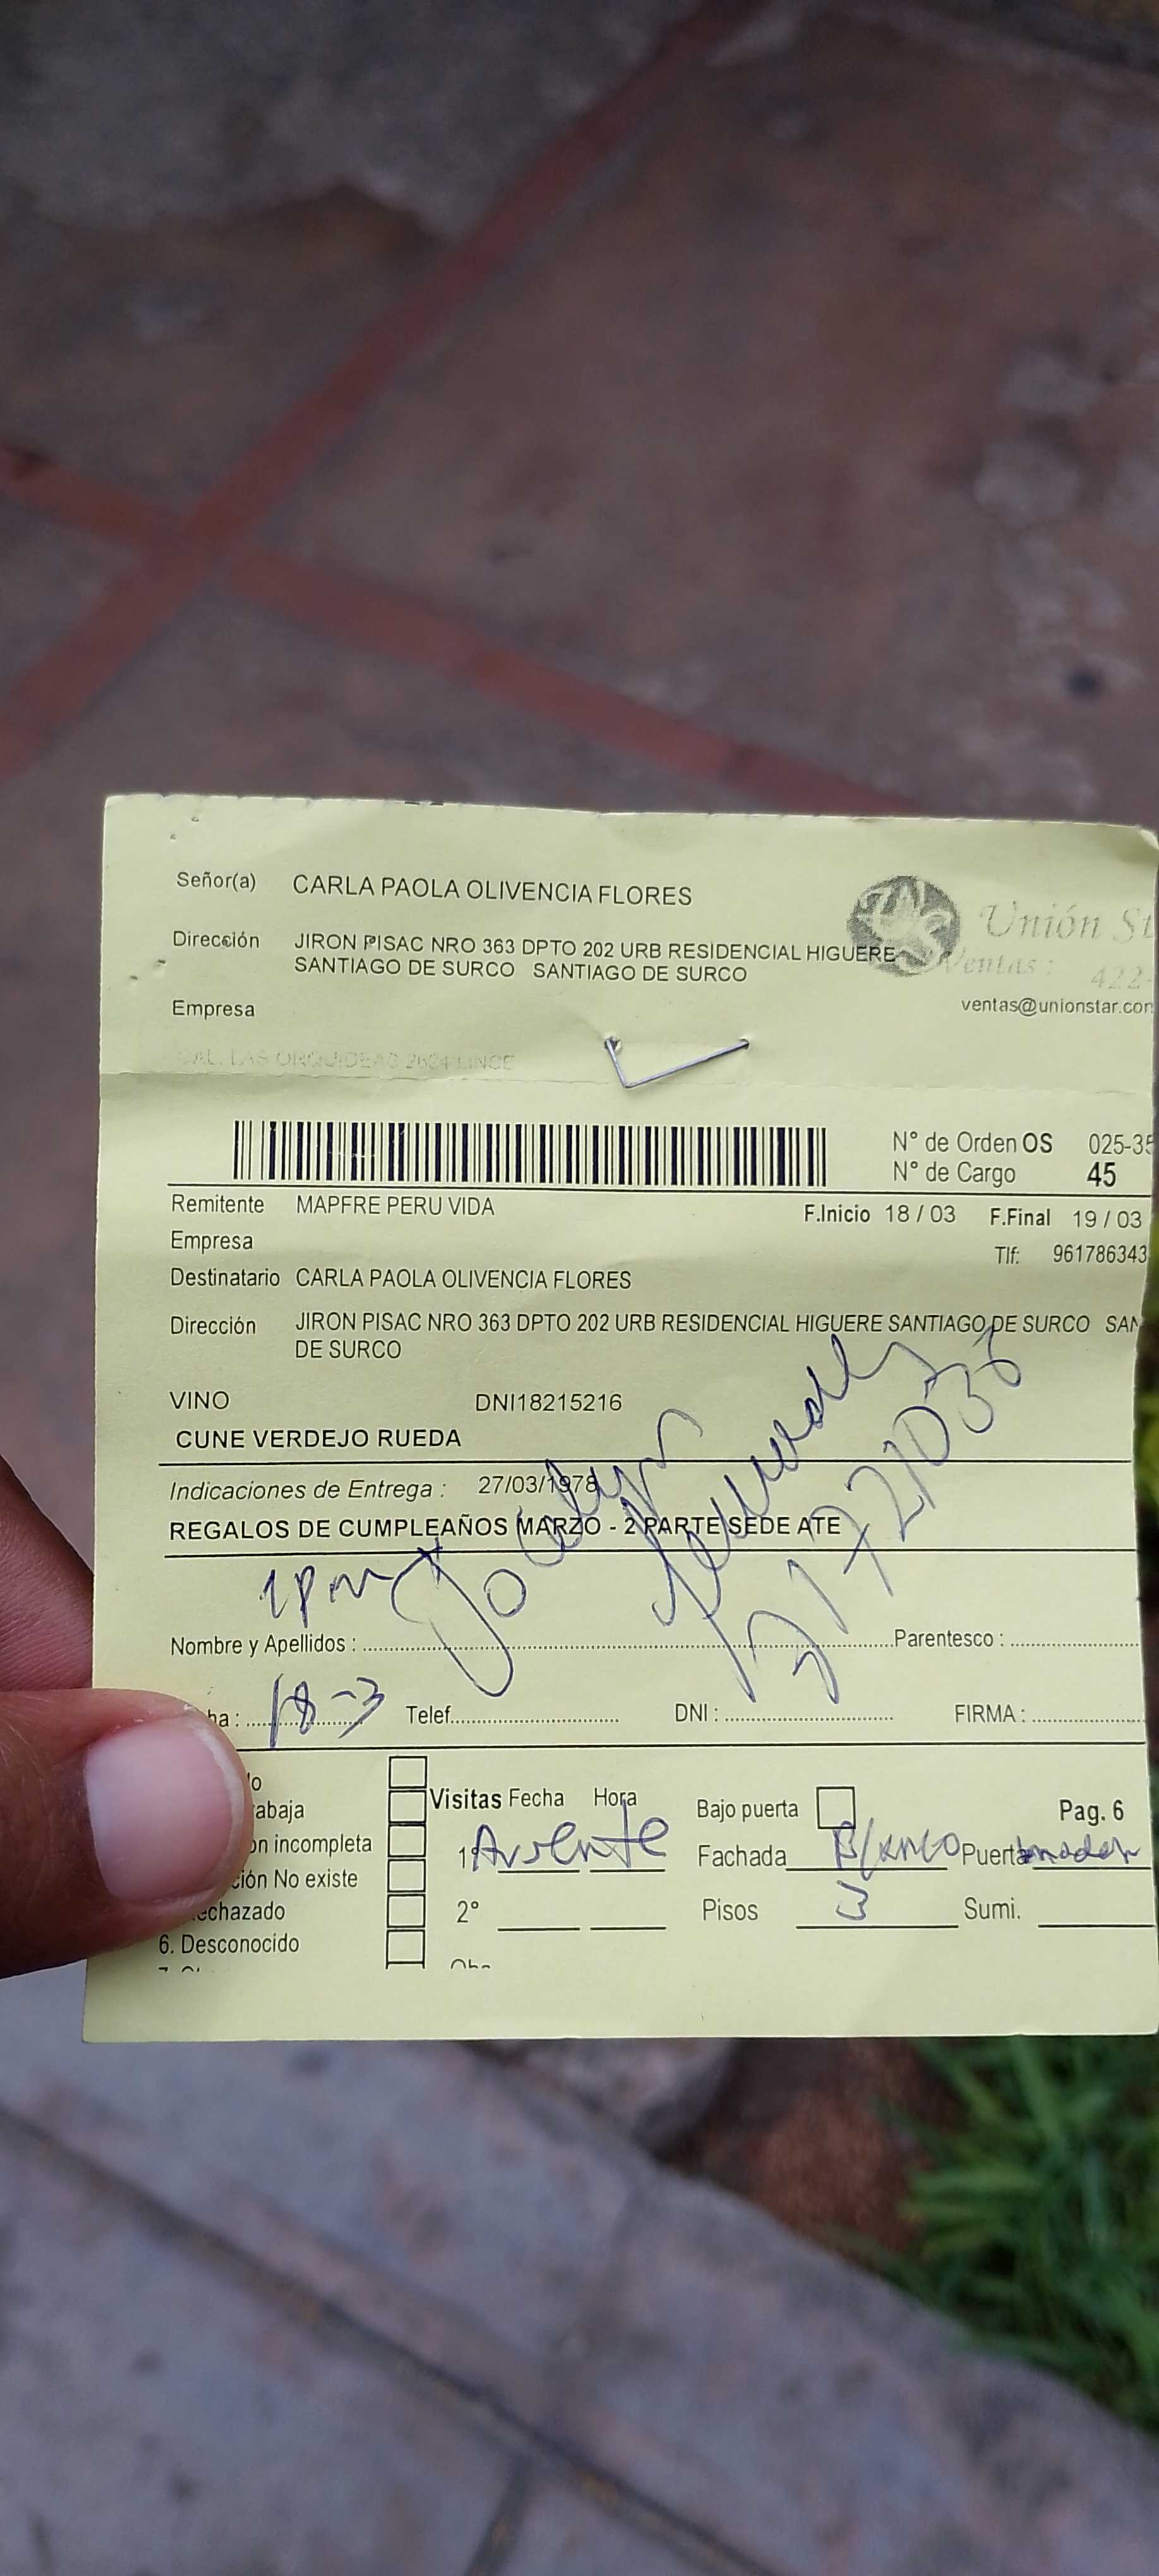 Señor(a) CARLA PAOLA OLIVENCIA FLORES
Unión St
Dirección JIRON PISAC NRO 363 DPTO 202 URB RESIDENCIAL HIGUERE
SANTIAGO DE SURCO SANTIAGO DE SURCO
Ventas :
422-
Empresa
ventas@unionstar.con
CAL. LAS ORQUIDEAS LINCE
N° de Orden OS 025-35
N° de Cargo 45
Remitente MAPFRE PERU VIDA
F.Inicio 18 / 03 F.Final 19 / 03
Empresa
Tlf: 961786343
Destinatario CARLA PAOLA OLIVENCIA FLORES
Dirección JIRON PISAC NRO 363 DPTO 202 URB RESIDENCIAL HIGUERE SANTIAGO DE SURCO SAN
DE SURCO
VINO DNI18215216
CUNE VERDEJO RUEDA
Indicaciones de Entrega : 27/03/1978
REGALOS DE CUMPLEAÑOS MARZO - 2 PARTE SEDE ATE
1pm
Nombre y Apellidos : Parentesco :
ha : 18-3 Telef. DNI : FIRMA :
lo
abaja
Visitas Fecha Hora
Bajo puerta
Pag. 6
on incompleta
1° Ausente
Fachada Blanco Puerta
ción No existe
echazado
2°
Pisos 3 Sumi.
6. Desconocido